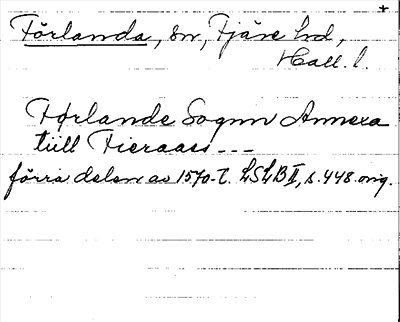 +
Förlanda, sn, Fjäre hd,
Hall. l.
Førlande Sognn Annexa
tiill Fieraass ---
förra delen av 1570-t. LSLB II, s. 448 orig.